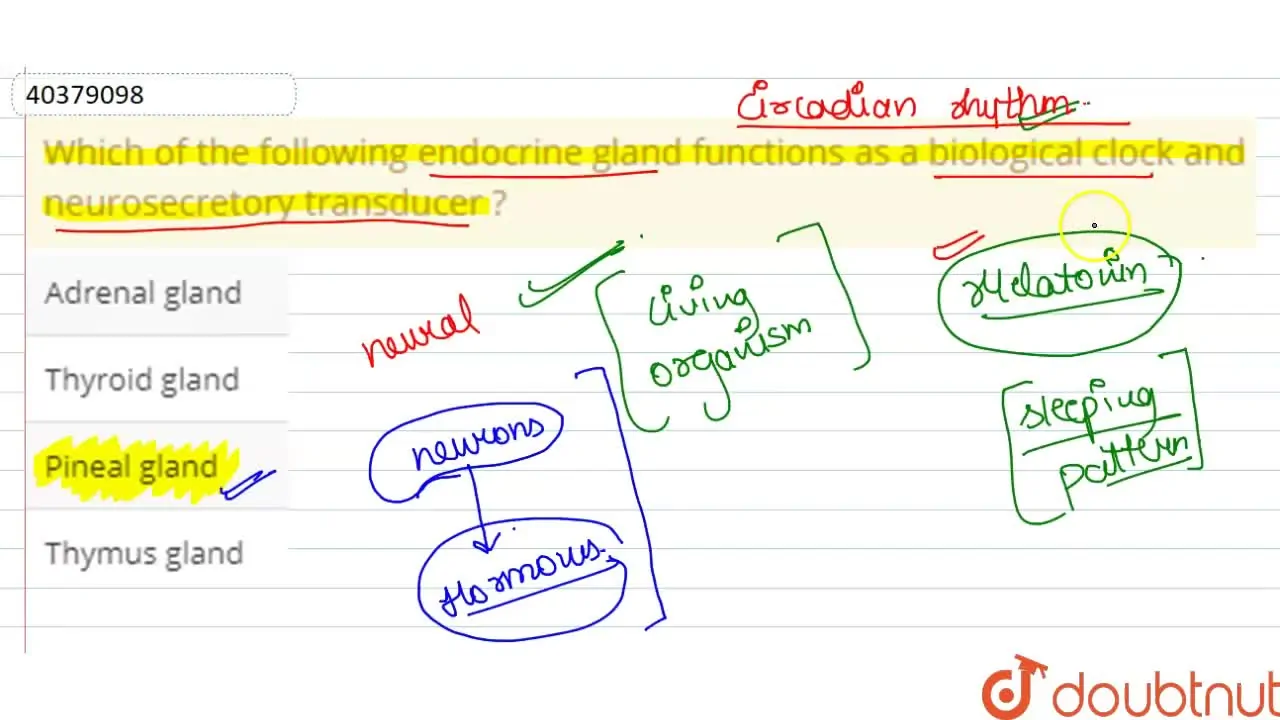 40379098
Circadian rhythm
Which of the following endocrine gland functions as a biological clock and
neurosecretory transducer ?
Adrenal gland
Thyroid gland
Pineal gland
Thymus gland
neural
neurons
Hormones
living
organism
Melatonin
sleeping
pattern
doubtnut